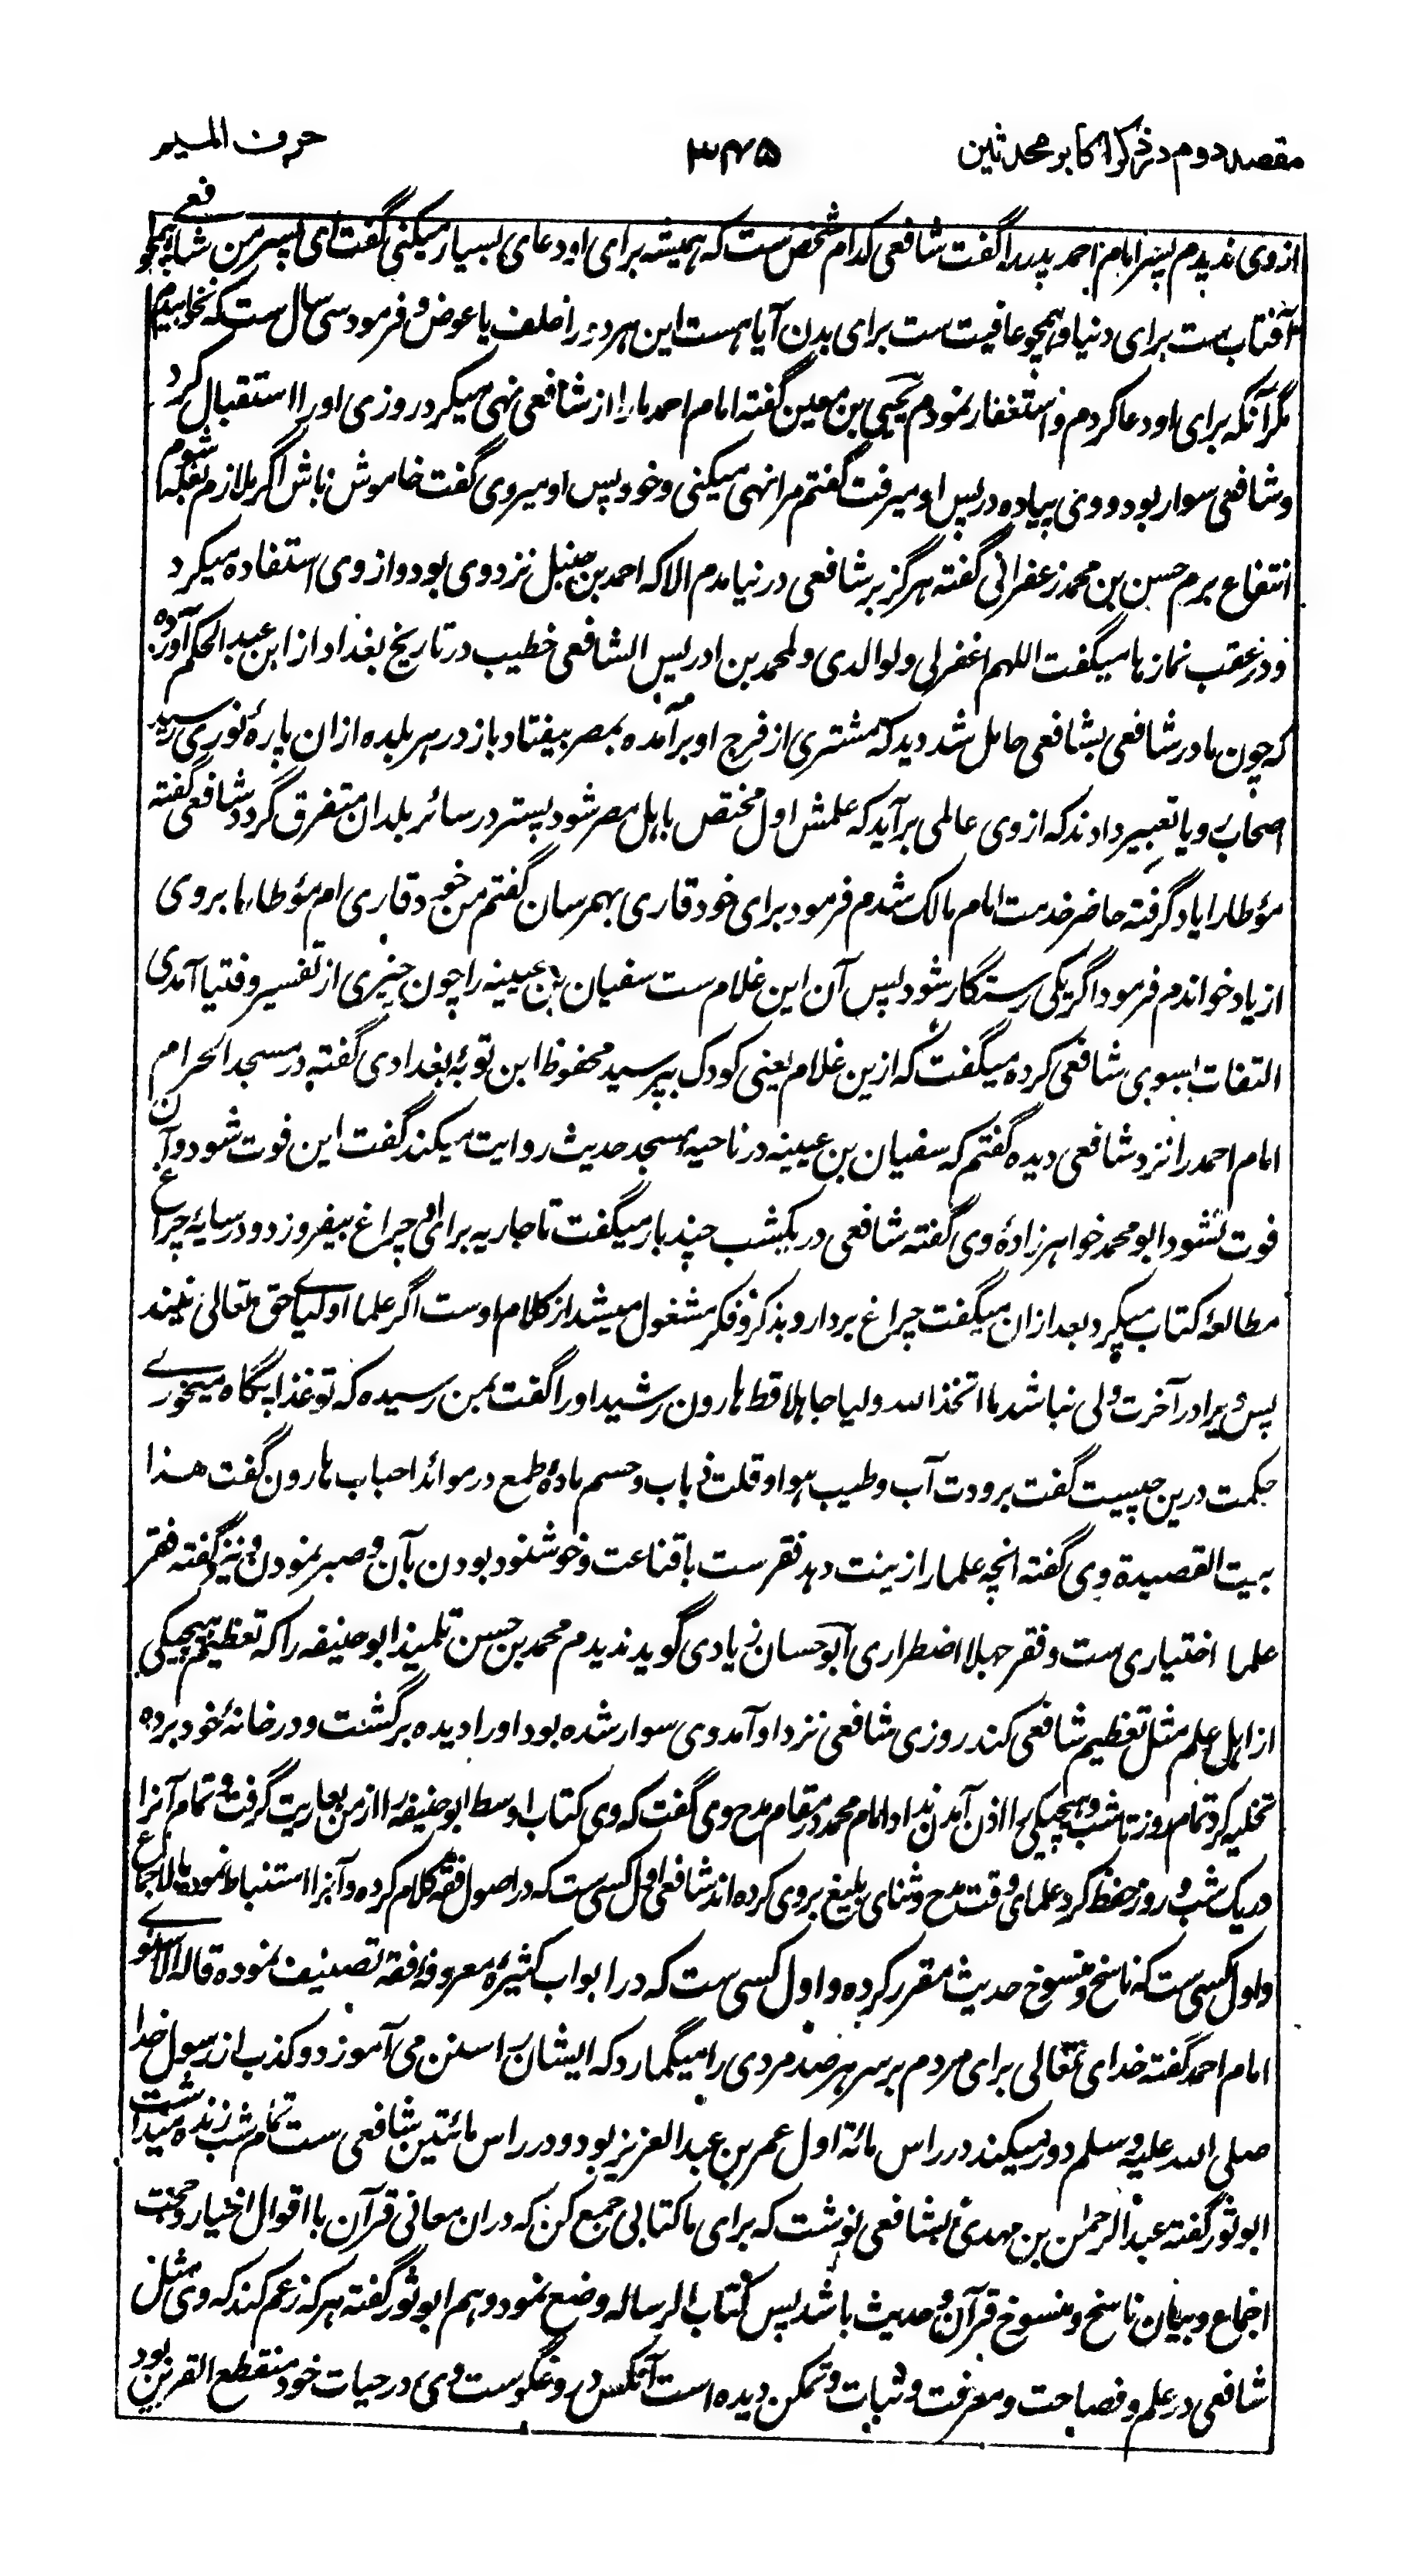 مقصد دوم در ذکر اکابر محدثین
۳۴۵
حرف المیم
از وی ندیدم پسر امام احمد پدر را گفت شافعی کدام شخص ست که همیشه برای او دعای بسیار میکنی گفت ای پسر من شافعی همچو
آفتاب ست برای دنیا و همچو عافیت ست برای بدن آیا هست این هر دو را خلف یا عوض و فرمود سی سال ست که نخوابیدم
مگر آنکه برای او دعا کردم و استغفار نمودم یحیی بن معین گفته امام احمد ما را از شافعی نهی میکرد روزی او را استقبال کرد
و شافعی سوار بود و وی پیاده در پس او میرفت گفتم مرا نهی میکنی و خود پس او میروی گفت خاموش باش اگر ملازم بغله شوم
انتفاع برم حسن بن محمد زعفرانی گفته هرگز بر شافعی در نیامدم الا که احمد بن حنبل نزد وی بود و از وی استفاده میکرد
و در عقب نمازها میگفت اللهم اغفر لی و لوالدی و لمحمد بن ادریس الشافعی خطیب در تاریخ بغداد از ابن عبد الحکم آورده
که چون مادر شافعی بشافعی حامل شد دید که مشتری از فرج او برآمده بمصر بیفتاد باز در هر بلده ازان پارهٔ نوری رسید
اصحاب رویا تعبیر دادند که از وی عالمی برآید که علمش اول مختص باهل مصر شود پستر در سائر بلدان متفرق گردد شافعی گفته
مؤطا را یاد گرفته حاضر خدمت امام مالک شدم فرمود برای خود قاری بهم رسان گفتم من خود قاری ام مؤطا را بروی
از یاد خواندم فرمود اگر یکی رستگار شود پس آن این غلام ست سفیان بن عیینه را چون چیزی از تفسیر و فتیا آمدی
التفات بسوی شافعی کرده میگفت که ازین غلام یعنی کودک بپرسید محفوظ ابن توبهٔ بغدادی گفته در مسجد الحرام
امام احمد را نزد شافعی دیده گفتم که سفیان بن عیینه در ناحیهٔ مسجد حدیث روایت میکند گفت این فوت شود و آن
فوت نشود ابو محمد خواهرزادهٔ وی گفته شافعی در یکشب چند بار میگفت تا جاریه برای او چراغ بیفروزد و در سایهٔ چراغ
مطالعهٔ کتاب میکرد بعد ازان میگفت چراغ بردار و بذکر و فکر مشغول میشد از کلام اوست اگر علما اولیای حق تعالی نیند
پس ویرا در آخرت ولی نباشد ما اتخذ الله ولیا جاهلا قط هارون رشید او را گفت بمن رسیده که تو غذا پگاه میخوری
حکمت درین چیست گفت برودت آب و طیب هوا و قلت ذباب و حسم مادهٔ طمع در موائد احباب هارون گفت هذا
بیت القصیدة وی گفته آنچه علما را زینت دهد فقر ست با قناعت و خوشنود بودن بآن و صبر نمودن و نیز گفته فقر
علما اختیاری ست و فقر جهلا اضطراری ابو حسان زیادی گوید ندیدم محمد بن حسن تلمیذ ابو حنیفه را که تعظیم هیچیکی
از اهل علم مثل تعظیم شافعی کند روزی شافعی نزد او آمد وی سوار شده بود او را دیده برگشت و در خانهٔ خود برده
تخلیه کرد تمام روز تا شب و هیچیکی را اذن آمدن نداد امام محمد در مقام مدح وی گفت که وی کتاب اوسط ابو حنیفه را از من بعاریت گرفت و تمام آنرا
در یک شب و روز حفظ کرد علمای وقت مدح و ثنای بلیغ بر وی کرده اند شافعی اول کسی ست که در اصول فقه کلام کرده و آنرا استنباط نموده بالاجماع
و اول کسی ست که ناسخ و منسوخ حدیث مقرر کرده و اول کسی ست که در ابواب کثیرهٔ معروفهٔ فقه تصنیف نموده قاله الاسنوی
امام احمد گفته خدای تعالی برای مردم بر سر هر صد مردی را میگمارد که ایشان را سنن می آموزد و کذب از رسول خدا
صلی الله علیه و سلم دور میکند در راس مائة اول عمر بن عبد العزیز بود و در راس مائتین شافعی ست تمام شب زنده میداشت
ابو ثور گفته عبد الرحمن بن مهدی بشافعی نوشت که برای ما کتابی جمع کن که دران معانی قرآن با اقوال اخیار و حجت
اجماع و بیان ناسخ و منسوخ قرآن و حدیث باشد پس کتاب الرساله وضع نمود و هم ابو ثور گفته هر که زعم کند که وی مثل
شافعی در علم و فصاحت و معرفت و ثبات و تمکن دیده است آنکس دروغگوست وی در حیات خود منقطع القرین بود